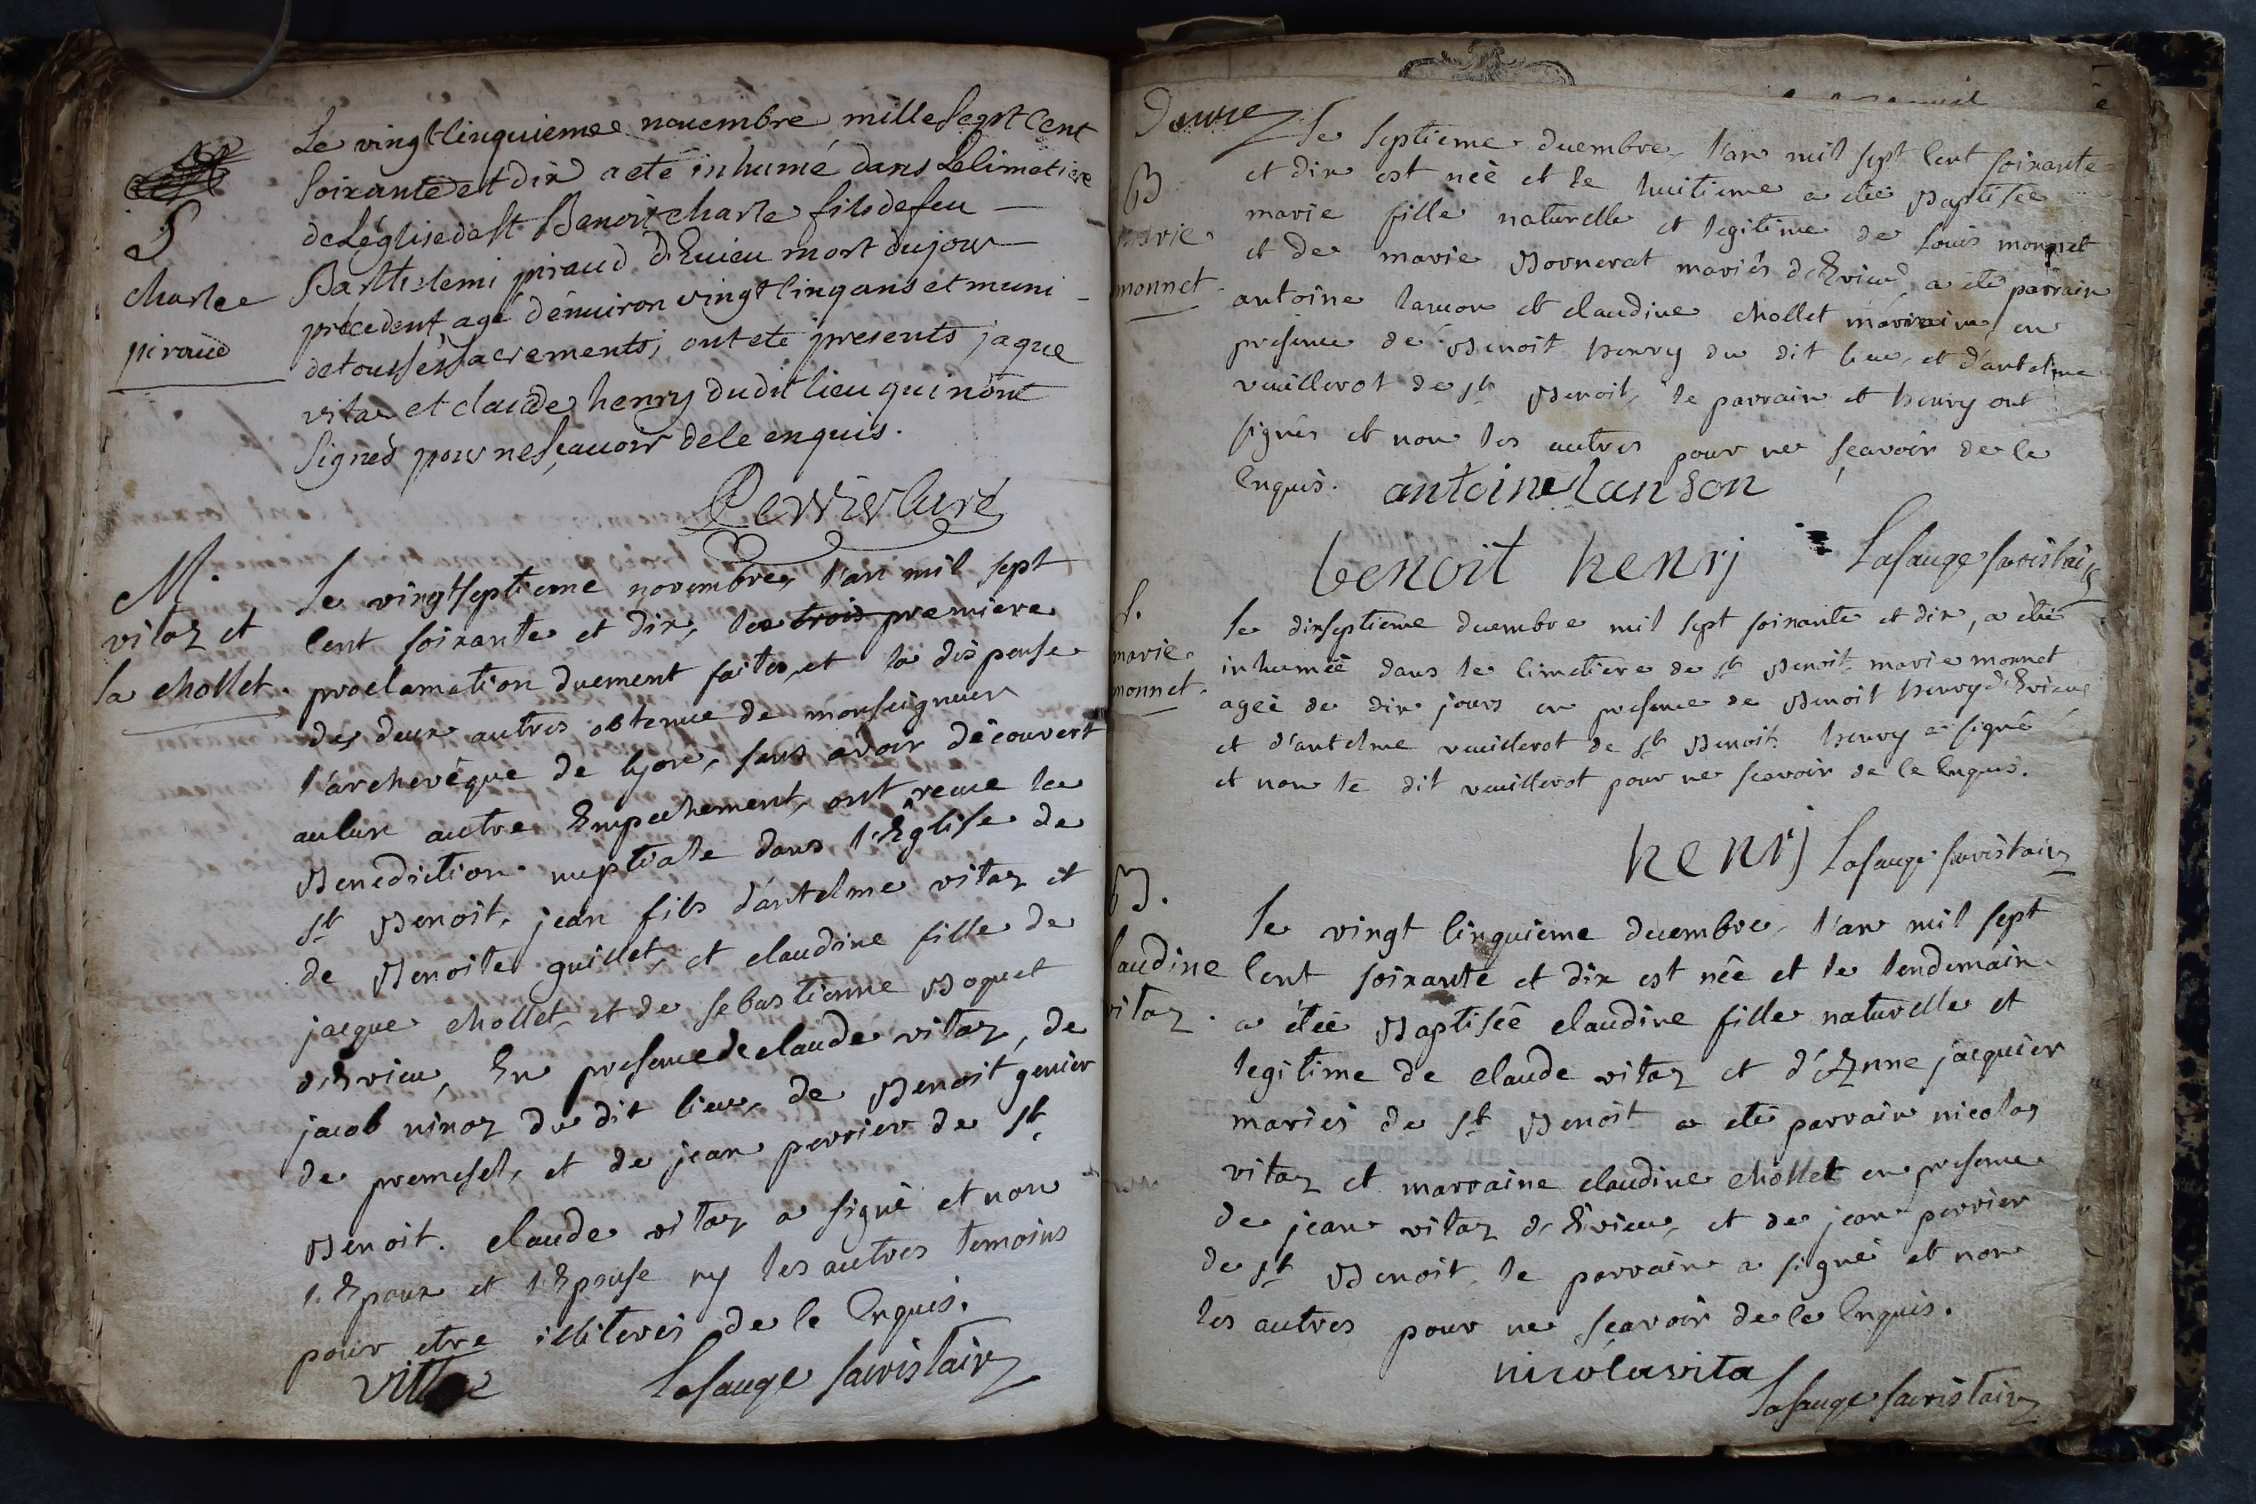 S
charle
piraud
Le vingtcinquieme novembre mille Sept Cent
Soixante et dix a eté inhumé dans Le Cimetiere
de L'églisedeSt Benoit charle fils de feu
Barthelemi piraud d'Evieu mort du jour
précedent agé d'enuiron vingt cinq ans et muni
de tous ses Sacrements, ont eté presents jaque
vitaz et claude henry dudit lieu qui n'ont
Signés pour ne Sçauoir de ce enquis.
Perrier Curé
M.
vitaz et
la chollet.
Le vingtseptieme novembre, l'an mil sept
Cent soixante et dix, les trois premiere
proclamation duement faites, et la dispense
des deux autres obtenue de monseigneur
l'archevêque de lyon, sans avoir découvert
aucun autre Empechement, ont reçue la
Benediction nuptiale dans l'Église de
st Benoit, jean fils d'antelme vitaz et
de Benoite guillet, et claudine fille de
jacque chollet, et de sebastienne Boquet
d'Evieu, En presence de claude vitaz, de
jacob ninoz du dit lieu, de Benoit genier
de premesel, et de jean perrier de st
Benoit. claude vitaz a signé et non
l'Epoux et l'Epouse ny les autres temoins
pour etre illiterés de ce Enquis.
vittaz
Lasauge sacristain
B
marie
monnet.
Le septieme decembre, l'an mil sept Cent soixante
et dix est née et le huitieme a eté Baptisée
marie fille naturelle et legitime de Louis monnet
et de marie Bornerat mariés d'Evieu, a eté parrain
antoine lanson et claudine chollet marraine, en
présence de Benoit henry du dit lieu, et d'antelme
veuillerot de st Benoit, le parrain et henry ont
signés et non les autres pour ne sçavoir de ce
Enquis.
antoine lanson
benoit henrj
Lasauge sacristain
S.
marie
monnet.
Le dixseptieme decembre mil sept soixante et dix, a eté
inhumée dans le Cimetiere de st Benoit marie monnet
agée de dix jours en presence de Benoit henry d'Evieu
et d'antelme veuillerot de st Benoit. henry a signé
et non le dit veuillerot pour ne scavoir de ce Enquis.
henrj
Lasauge sacristain
B.
laudine
vitaz.
Le vingt Cinquieme decembre, l'an mil sept
Cent soixante et dix est née et le lendemain
a étée Baptisée claudine fille naturelle et
legitime de claude vitaz et d'Anne jacquier
mariés de st Benoit a eté parrain nicolas
vitaz et marraine claudine chollet en presence
de jean vitaz d'Evieu, et de jean perrier
de st Benoit, le parrain a signé et non
les autres pour ne sçavoir de ce Enquis.
nicolasvita
Lasauge sacristain